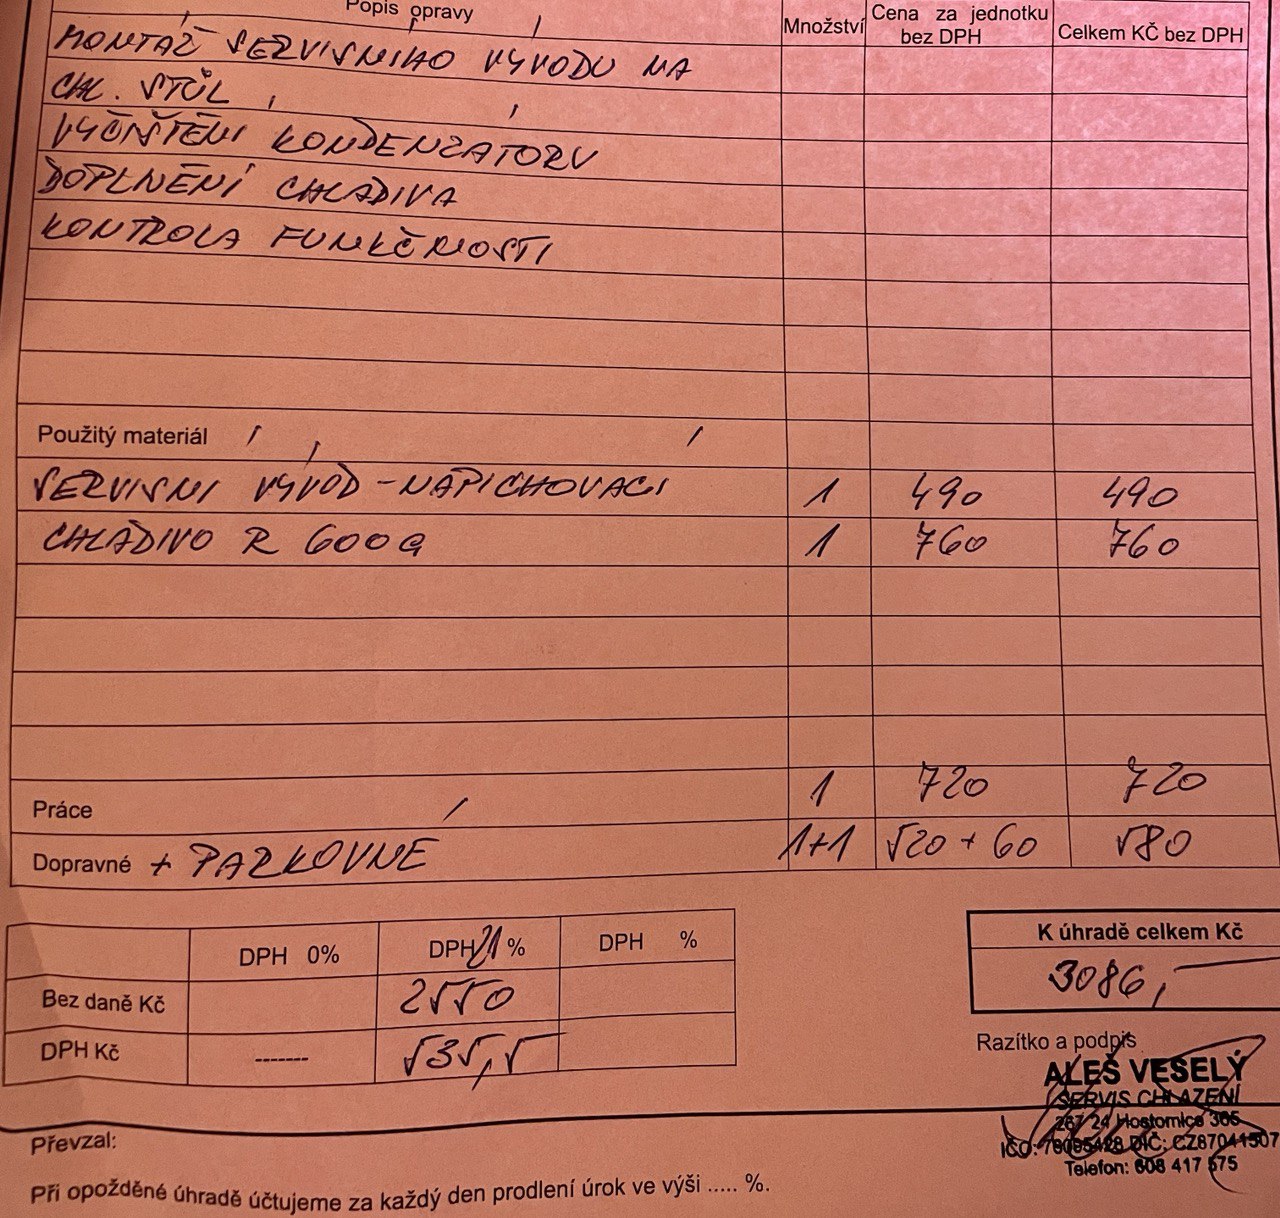 Popis opravy
Množství
Cena za jednotku
bez DPH
Celkem KČ bez DPH
MONTÁŽ SERVISNIHO VÝVODU NA
CHL. STŮL
VYČIŠTĚNÍ KONDENZÁTORU
DOPLNĚNÍ CHLADIVA
KONTROLA FUNKČNOSTI
Použitý materiál
SERVISNÍ VÝVOD - NAPICHOVACÍ 1 490 490
CHLADIVO R 600a 1 760 760
Práce 1 720 720
Dopravné + PARKOVNÉ 1+1 520 + 60 580
DPH 0% DPH 21 % DPH %
Bez daně Kč 2550
DPH Kč ------- 535,5
K úhradě celkem Kč
3086,-
Razítko a podpis
ALEŠ VESELÝ
SERVIS CHLAZENÍ
267 24 Hostomice 365
IČO: DIČ: CZ87041507
Telefon: 608 417 575
Převzal:
Při opožděné úhradě účtujeme za každý den prodlení úrok ve výši ..... %.